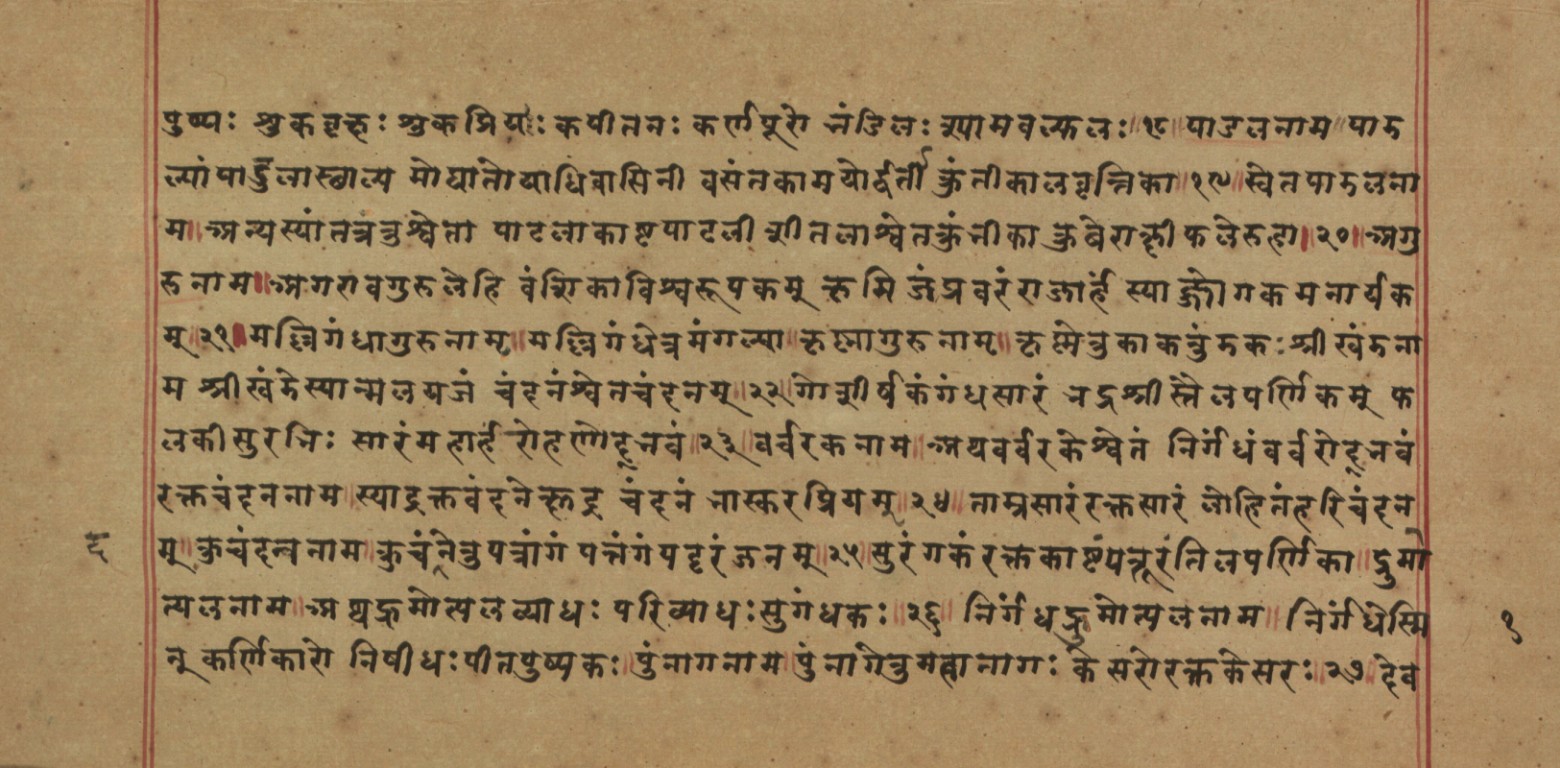 पुष्पः शुकवृक्षः शुकप्रियः कपीतनः कर्णपूरो भंडिलः श्यामवल्कलः १८ पाडलनाम पाड
ल्यांपाडुलास्थाल्य मोघातोयाधिवासिनी वसंतकामयोर्दूती कुंतीकालवृन्तिका १९ स्वेतपाडलना
म अन्यस्यांतत्रतुश्वेता पाटलाकाष्टपाटली शीतलाश्वेतकुंभीका कुबेराक्षीफलेरुहा २० अगु
रुनाम अगरावगुरुलेहि वंशिकाविश्वरूपकम् कृमिजंप्रवरंराजार्हं स्याज्जोगकमनार्यक
म् २१ मल्लिगंधागुरुनाम मल्लिगंधेत्रमंगल्या कृष्णागुरुनाम कृष्णेतुकाकतुंडकः श्रीखंडना
म श्रीखंडेस्यान्मलयजं चंदनंश्वेतचंदनम् २२ गोशीर्षकंगंधसारं भद्रश्रीस्तैलपर्णिकम् फ
लकीसुरभिः सारंमहार्हं रोहणोद्भवं २३ वर्वरकनाम अथवर्वरकेश्वेतं निर्गंधंवर्वरोद्भवं
रक्तचंदननाम स्याद्रक्तचंदनेक्षुद्र चंदनं भास्करप्रियम् २४ ताम्रसारंरक्तसारं लोहितंहरिचंदन
म् कुचंदनननाम कुचंनेतुपत्रांगं पत्तंगंपट्टरंजनम् २५ सुरंगकंरक्तकाष्टंपत्तूरंतिलपर्णिका द्रुमो
द
त्पलनाम अथद्रुमोत्पलव्याधः परिव्याधःसुगंधकः २६ निर्गंधद्रुमोत्पलनाम निर्गंधेस्मि
१
न् कर्णिकारो निषीधःपीतपुष्पकः पुंनागनाम पुंनागेतुमहानागः केसरोरक्तकेसरः २७ देव